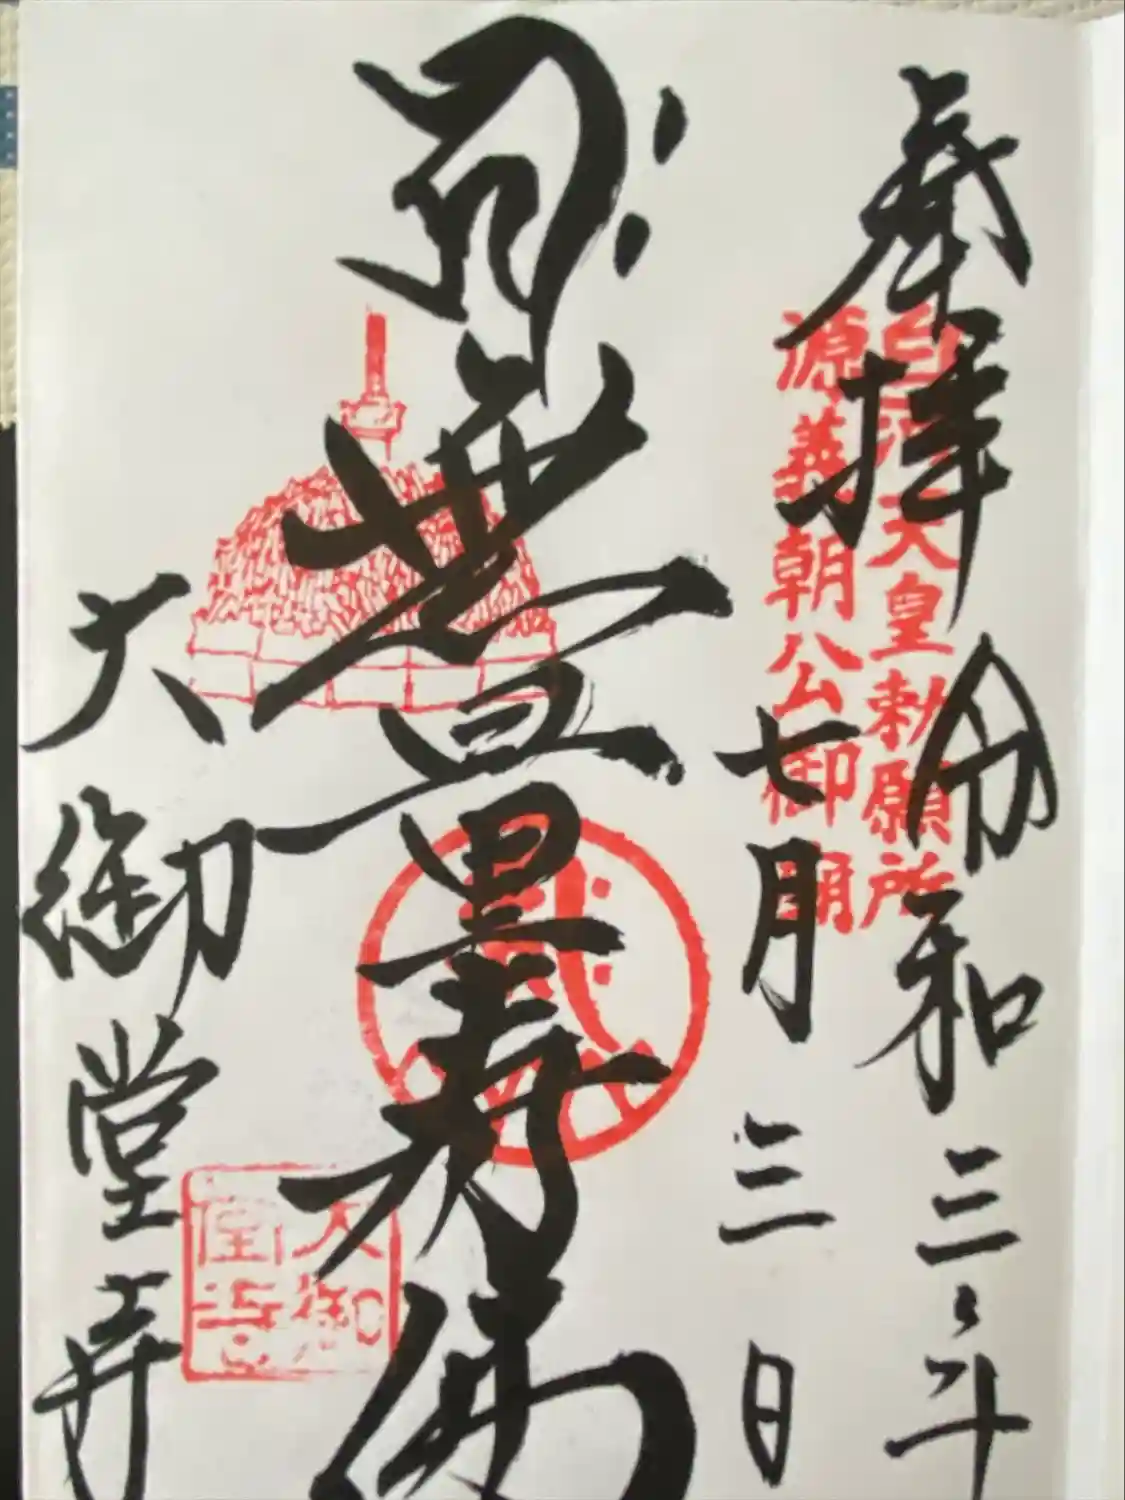 奉拝
令和三年
白河天皇勅願所
源義朝公御廟
七月三日
無量寿佛
大御堂寺
大御堂寺